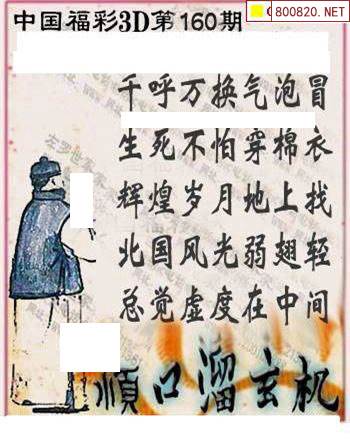 中国福彩3D第160期
800820.NET
千呼万换气泡冒
生死不怕穿棉衣
辉煌岁月地上找
北国风光弱翅轻
总觉虚度在中间
顺口溜玄机